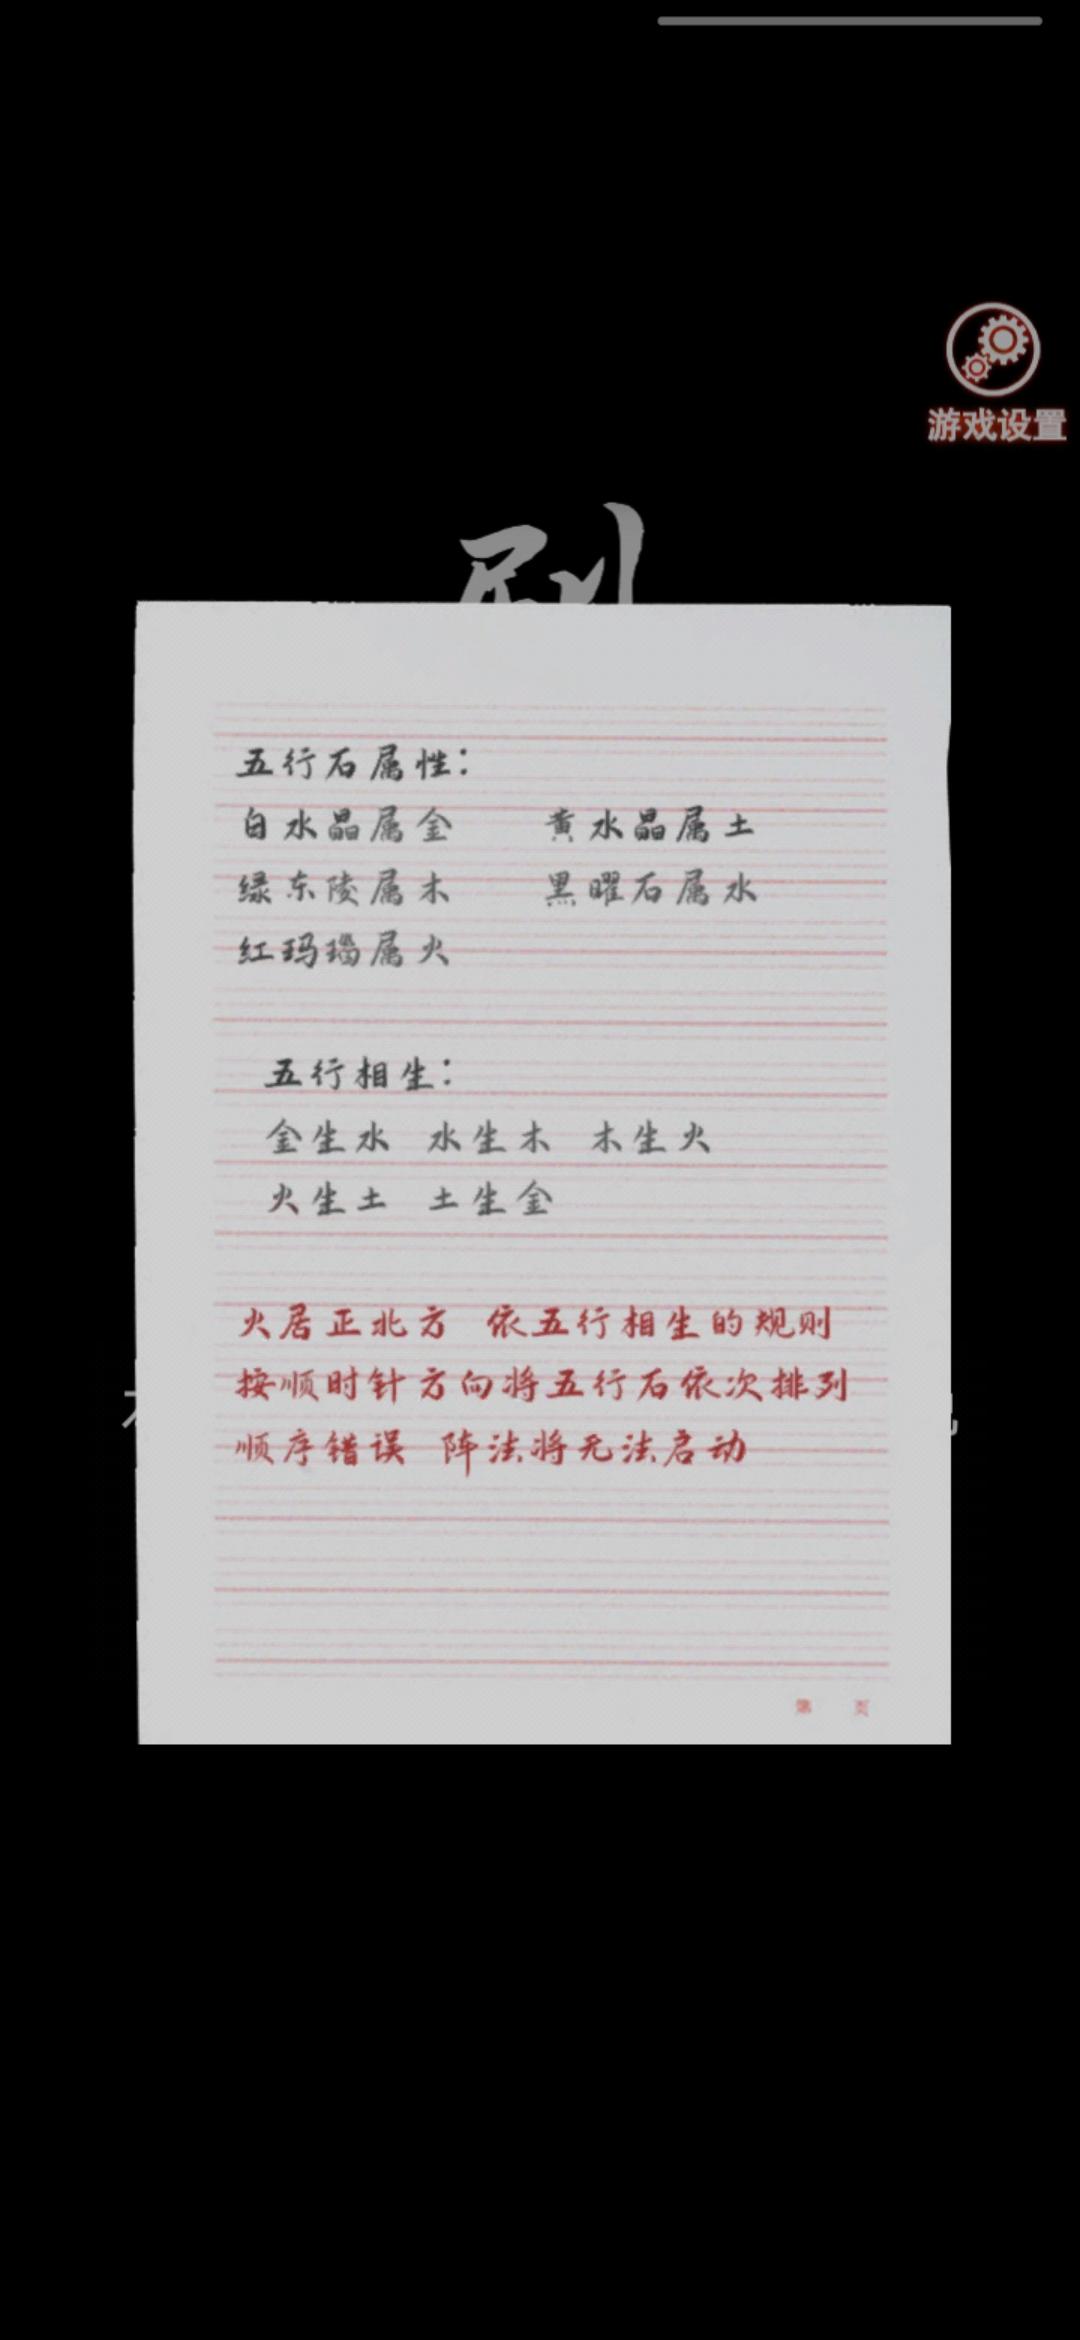 游戏设置
五行石属性：
白水晶属金 黄水晶属土
绿东陵属木 黑曜石属水
红玛瑙属火
五行相生：
金生水 水生木 木生火
火生土 土生金
火居正北方 依五行相生的规则
按顺时针方向将五行石依次排列
顺序错误 阵法将无法启动
第 页